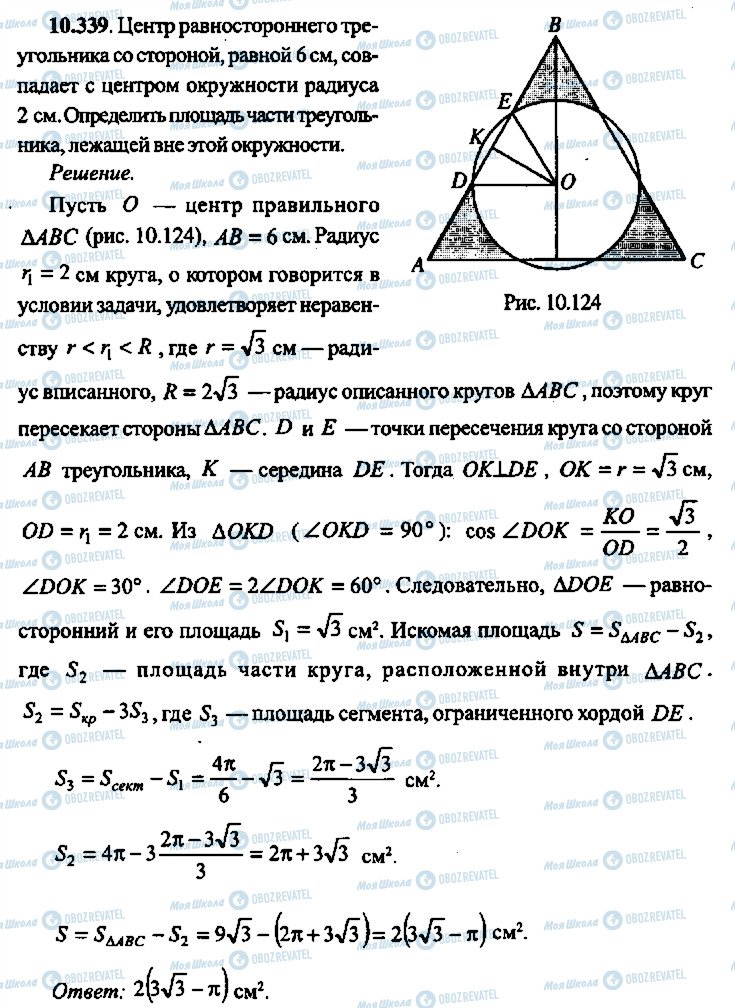 10.339. Центр равностороннего тре-
угольника со стороной, равной 6 см, сов-
падает с центром окружности радиуса
2 см. Определить площадь части треуголь-
ника, лежащей вне этой окружности.
Решение.
Пусть O — центр правильного
ΔABC (рис. 10.124), AB = 6 см. Радиус
r₁ = 2 см круга, о котором говорится в
условии задачи, удовлетворяет неравен-
ству r < r₁ < R , где r = √3 см — ради-
B
E
K
D
O
A
C
Рис. 10.124
ус вписанного, R = 2√3 — радиус описанного кругов ΔABC , поэтому круг
пересекает стороны ΔABC . D и E — точки пересечения круга со стороной
AB треугольника, K — середина DE . Тогда OK⊥DE , OK = r = √3 см,
OD = r₁ = 2 см. Из ΔOKD ( ∠OKD = 90° ): cos ∠DOK = KO/OD = √3/2 ,
∠DOK = 30° . ∠DOE = 2∠DOK = 60° . Следовательно, ΔDOE — равно-
сторонний и его площадь S₁ = √3 см². Искомая площадь S = S_ΔABC − S₂ ,
где S₂ — площадь части круга, расположенной внутри ΔABC .
S₂ = Sкр − 3S₃ , где S₃ — площадь сегмента, ограниченного хордой DE .
S₃ = Sсект − S₁ = 4π/6 − √3 = (2π − 3√3)/3 см².
S₂ = 4π − 3 (2π − 3√3)/3 = 2π + 3√3 см².
S = S_ΔABC − S₂ = 9√3 − (2π + 3√3) = 2(3√3 − π) см².
Ответ: 2(3√3 − π) см².